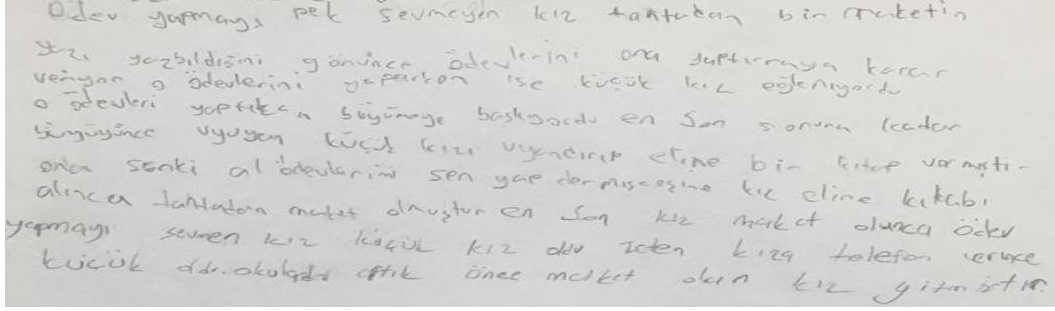 Ödev yapmayı pek sevmeyen kız tahtadan bir maketin
yazı yazbildiğini görünce ödevlerini ona yaptırmaya karar
veriyor o ödevlerini yaparken ise küçük kız eğleniyordu
o ödevleri yaptıkca büyümeye başlıyordu en son sonuna kadar
büyüyünce uyuyan küçük kızı uyandırıp eline bir kitap vermişti
ona sanki al ödevlerini sen yap dermişcesine kız eline kitabı
alınca tahtadan maket olmuştur en son kız maket olunca ödev
yapmayı sevmen kız küçük kız kıza telefon verince
küçük artık önce maket olan kız gitmiştir.